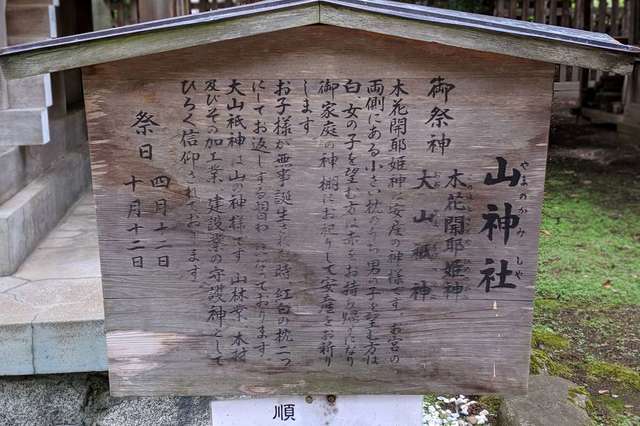 山神社
やまのかみしや
御祭神
木花開耶姫神
大山祇神
木花開耶姫神は安産の神様です お宮の
両側にある小さい枕のうち男の子を望む方は
白、女の子を望む方は赤をお持ち帰りになり
御家庭の神棚にお祀りして安産をお祈り
します
お子様が無事誕生された時 紅白の枕二つ
にしてお返しする習わしになっております
大山祇神は山の神様です 山林業、木材
及びその加工業、建設業の守護神として
ひろく信仰されております
祭日 四月十二日
十月十二日
順